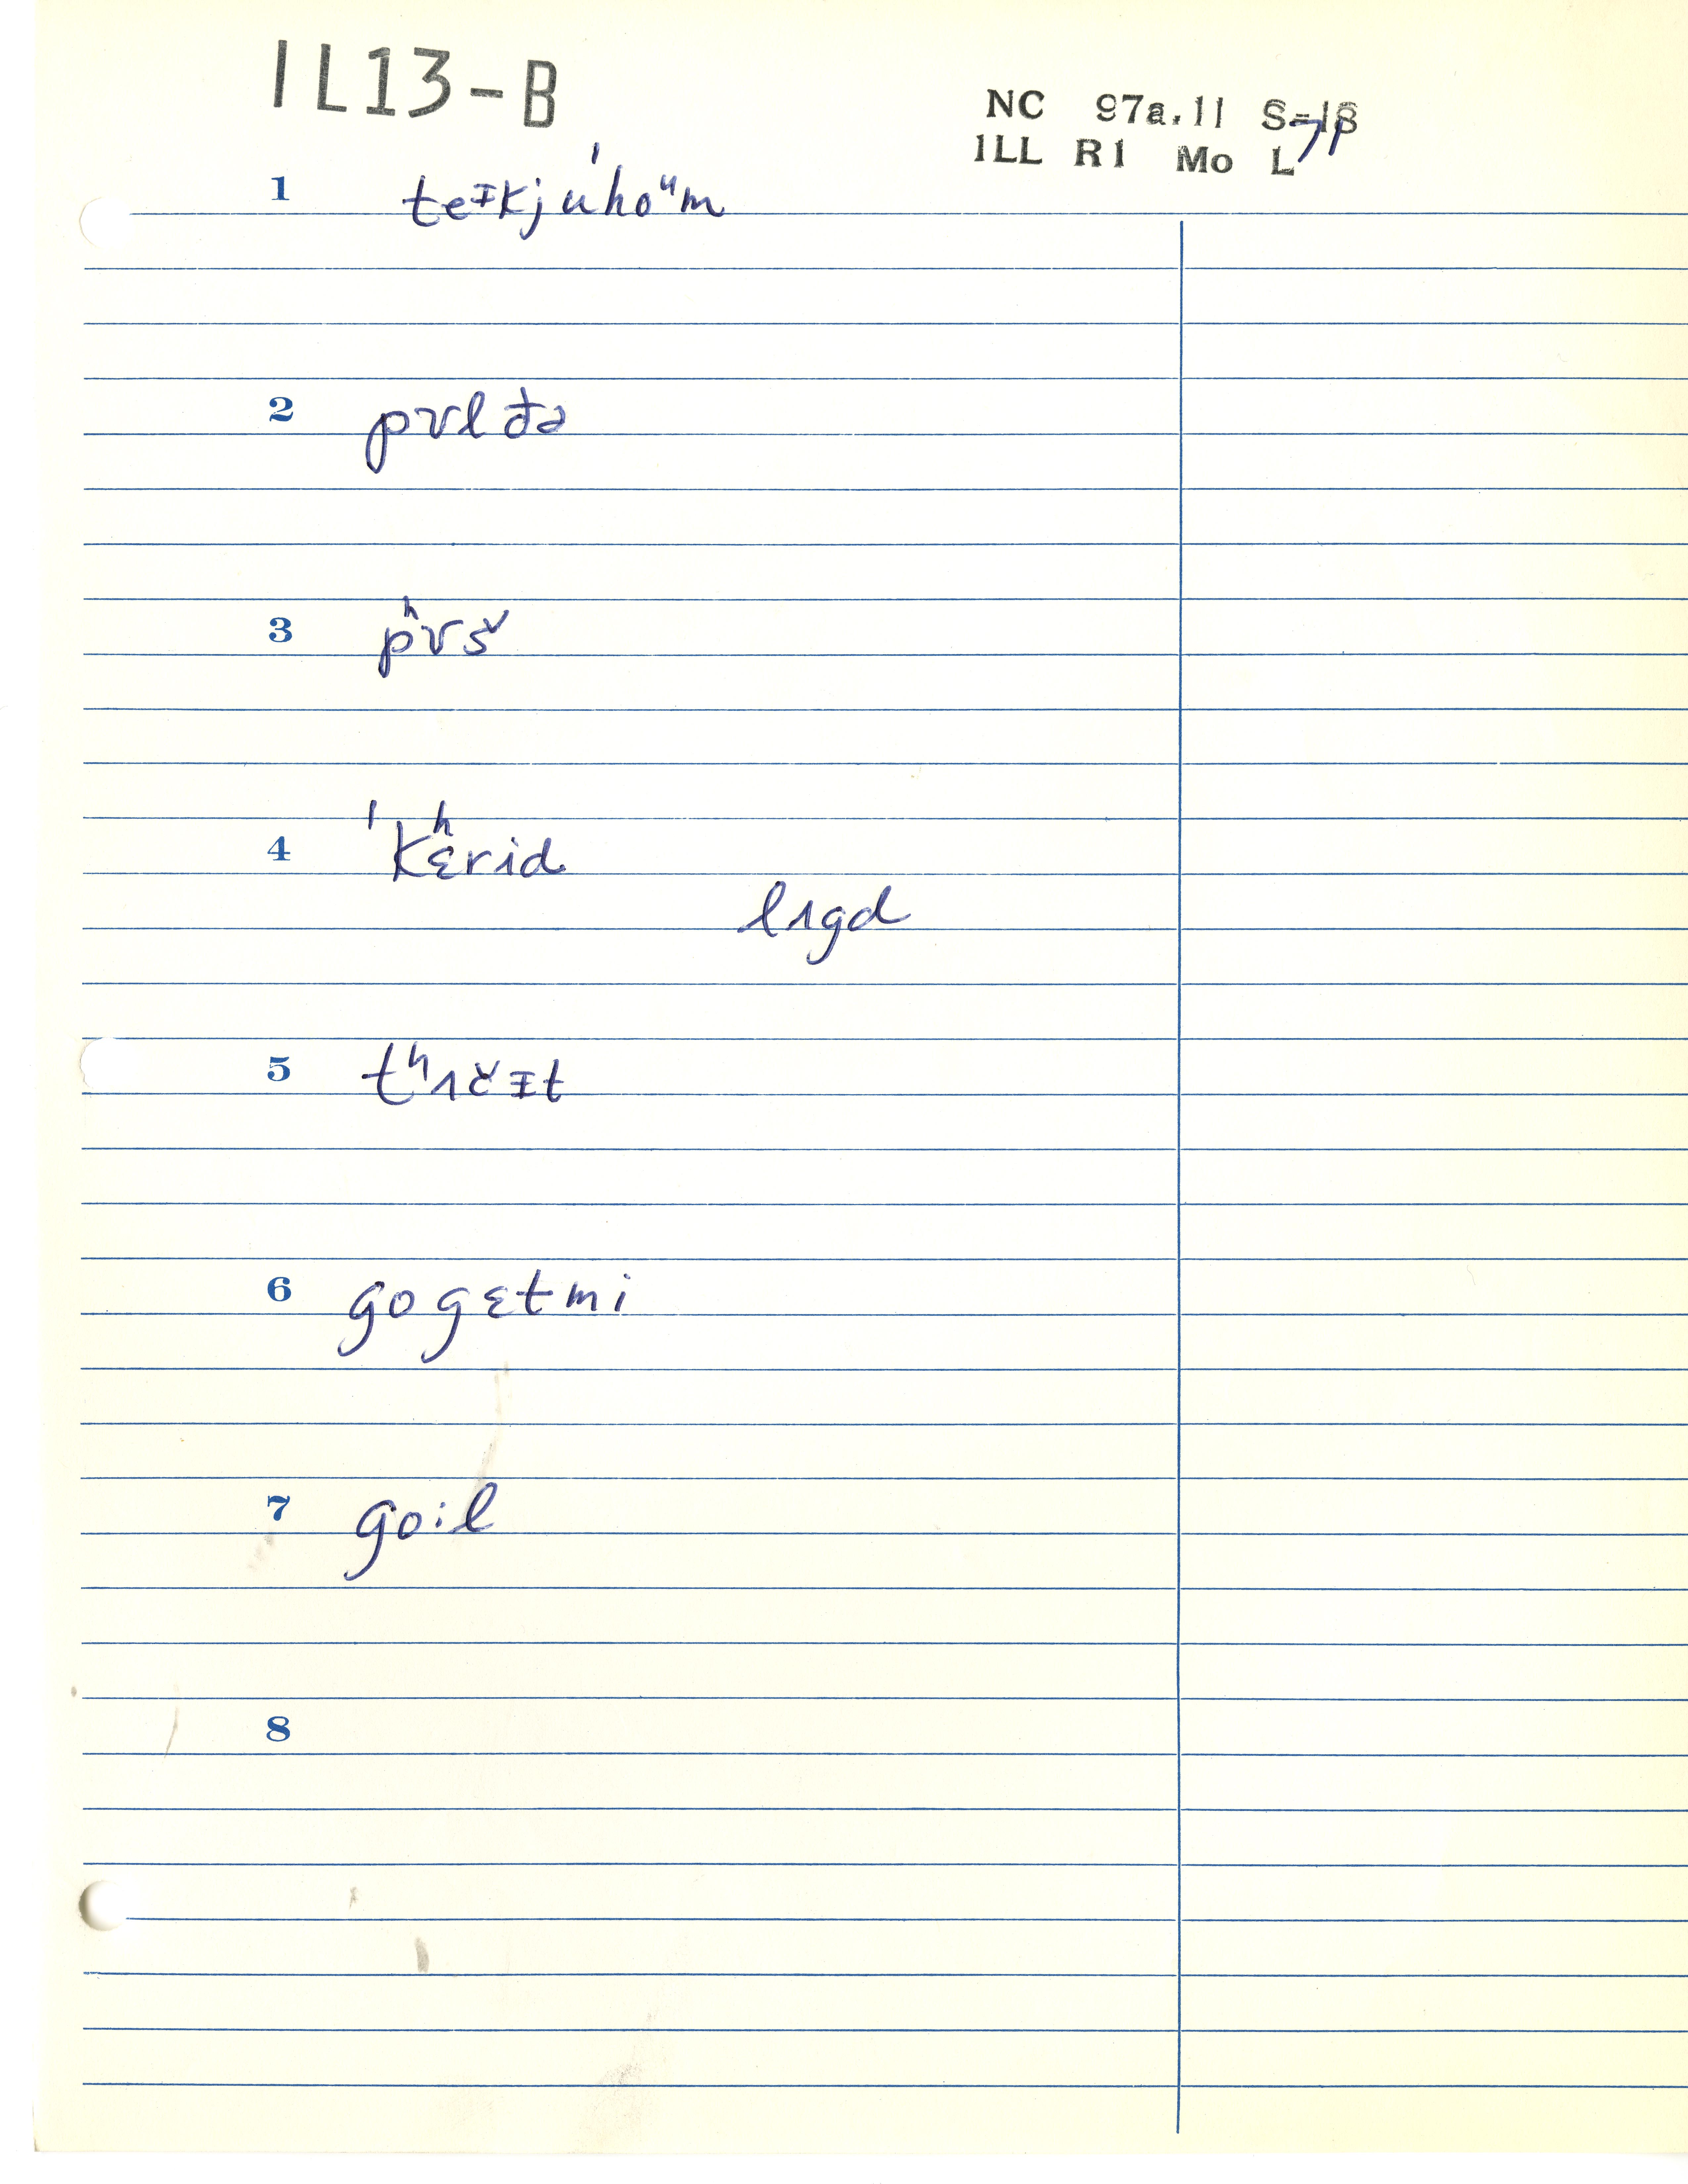 IL13-B
NC 97a.11 S-18
ILL R1 Mo L 71
1 teᴵkjúhoᵘm
2 pʊl đə
3 pʰʊš
4 ˈkʰɛrid
lɪgd
5 tʰʌčɪt
6 go gɛt mi
7 go:l
8